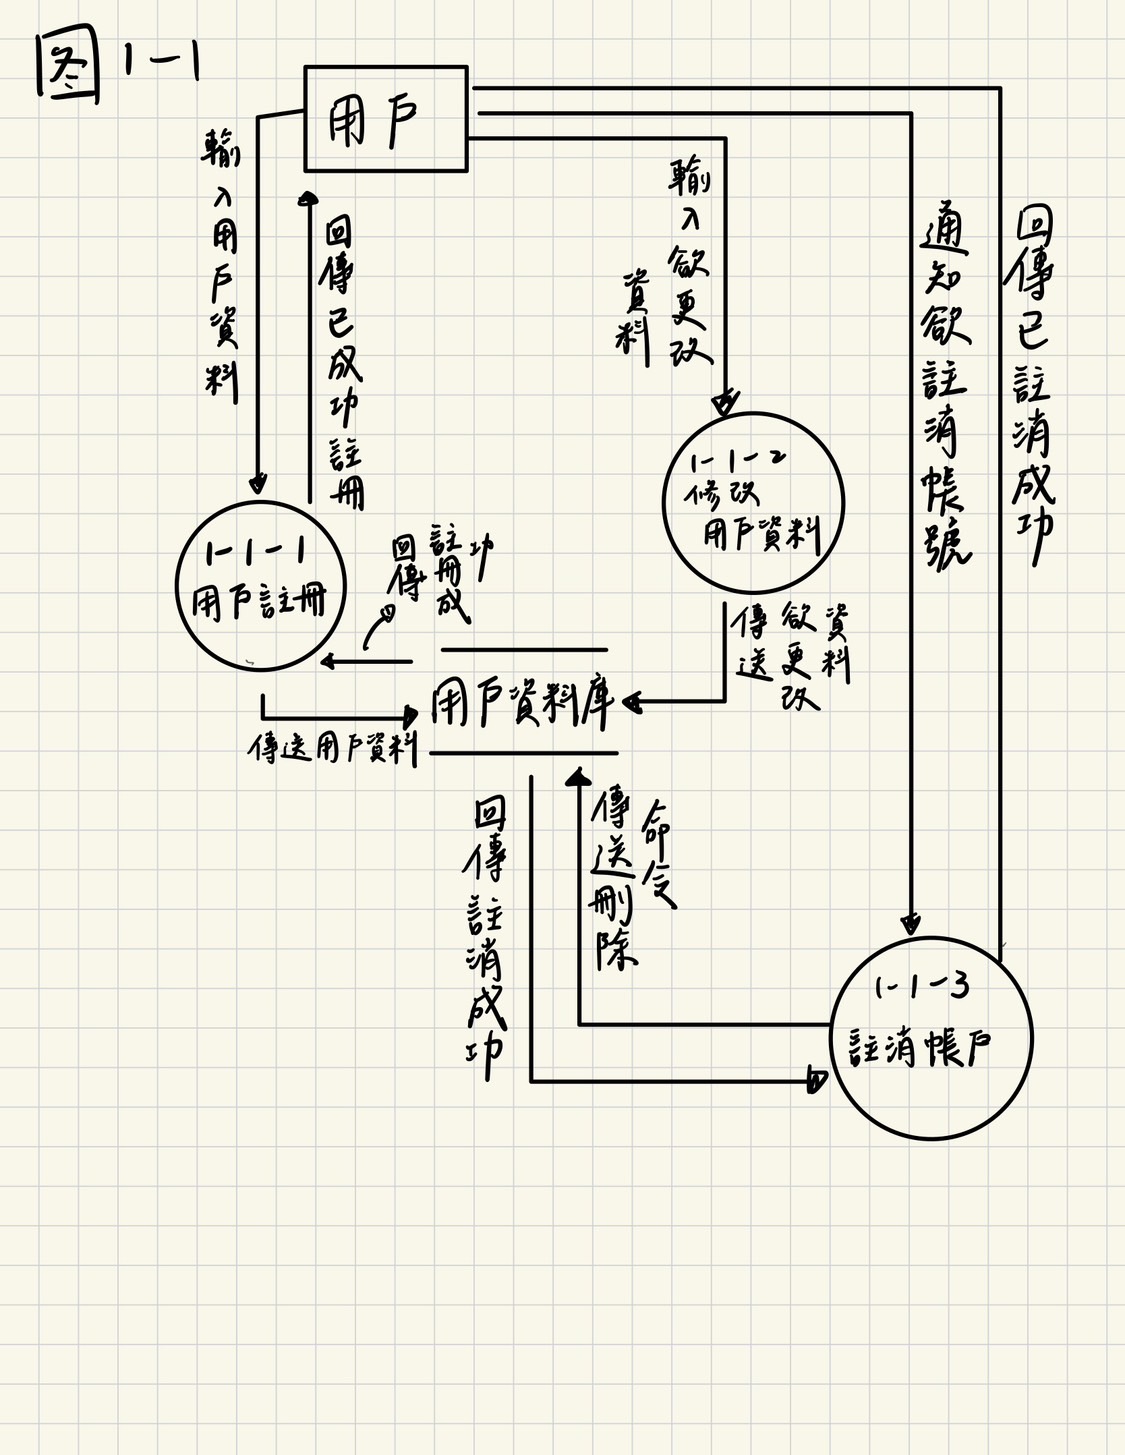 图 1-1
用戶
輸入用戶資料
回傳已成功註冊
輸入欲更改
資料
通知欲註消帳號
回傳已註消成功
1-1-1
用戶註冊
1-1-2
修改
用戶資料
回傳
註冊成
功
傳送
欲更改
資料
用戶資料庫
傳送用戶資料
回傳註消成功
傳送刪除
命令
1-1-3
註消帳戶